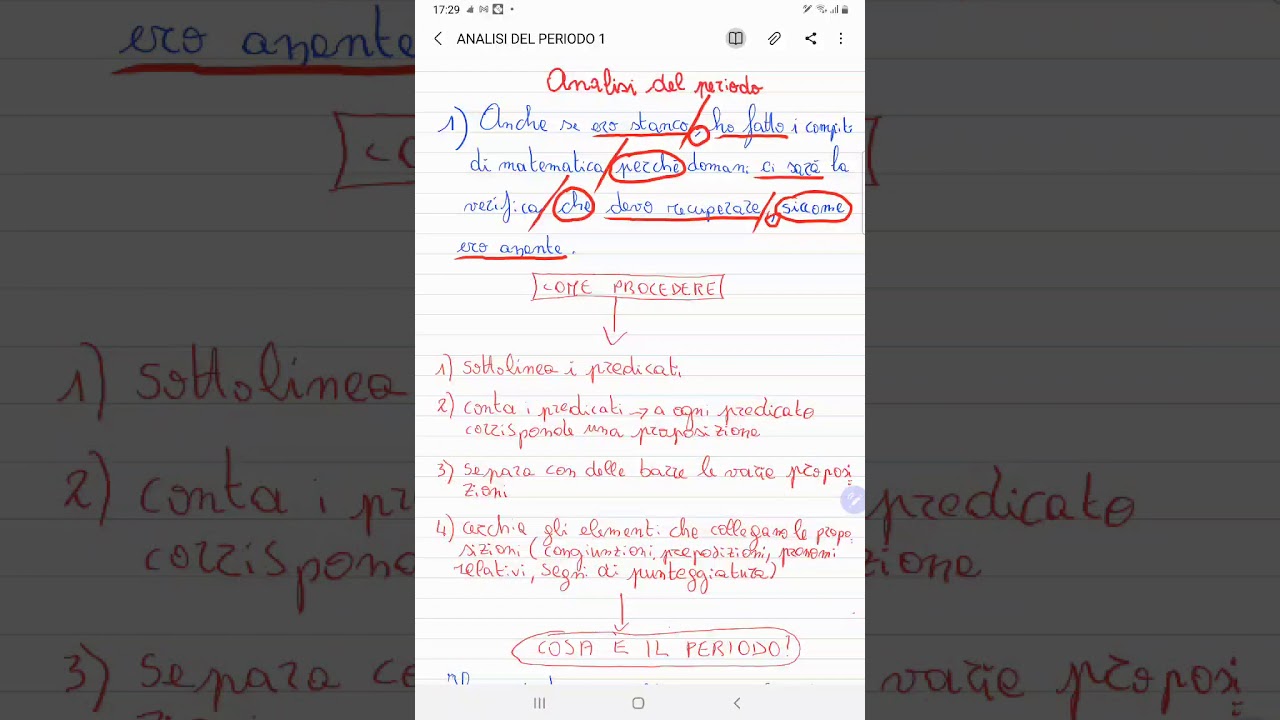 17:29
ANALISI DEL PERIODO 1
Analisi del periodo
1) Anche se ero stanco, ho fatto i compiti
di matematica perchè domani ci sarà la
verifica che devo recuperare, siccome
ero assente.
COME PROCEDERE
1) sottolinea i predicati
2) conta i predicati → a ogni predicato
corrisponde una proposizione
3) separa con delle barre le varie proposi
zioni
4) cerchia gli elementi che collegano le propo
sizioni (congiunzioni, preposizioni, pronomi
relativi, segni di punteggiatura)
COSA È IL PERIODO?
ero assente
1) sottolinea
2) conta i pr
predicato
corrispond
zione
3) separa co
varie proposi